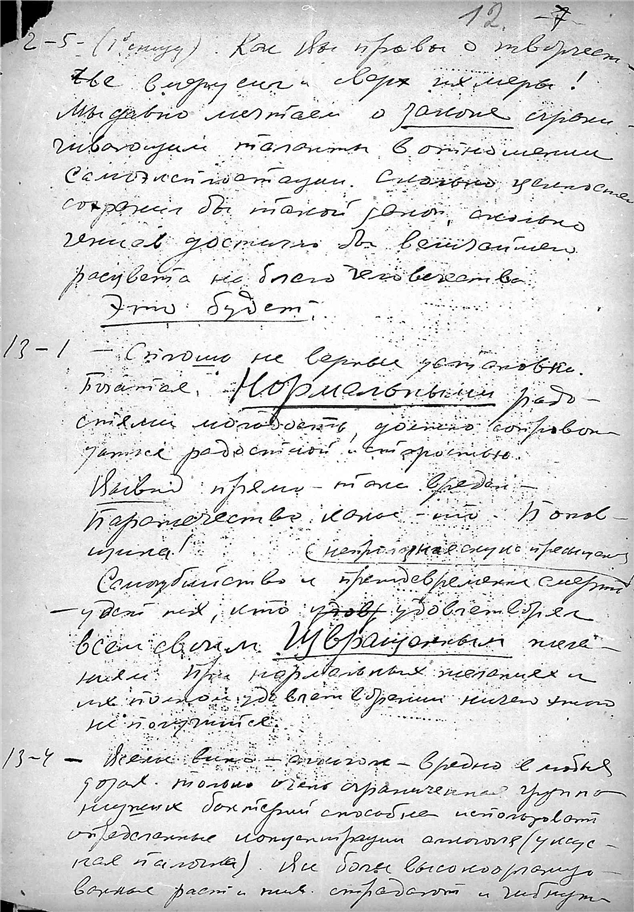 12 -7-
2-5- (1° снизу). Как Вы правы о творчест-
ве впрус и сверх меры!
Мы давно мечтаем о законе ограни-
чивающим таланты в отношении
самоэксплоатации. Сколько ценностей
сохранил бы такой закон, сколько
гениев достигло бы величайшего
расцвета на благо человечества.
Это будет.
13-1 - Сплошь не верные установки.
Нормальными радо-
стями молодость, должна сопровож-
даться радостной и старостью.
Вывод прямо-таки вреден -
какое-то. Попов-
щина!
Самоубийство и преждевременная смерть
- удел тех, кто удовлетворял
всем своим Извращенным жела-
ниям. При нормальных желаниях и
их полном удовлетворении ничего этого
не получится.
13-4 - вино - алкоголь - вредно в любых
дозах. Только очень ограниченная группа
низших бактерий способна использовать
определенные концентрации алкоголя (уксус-
ная палочка). Все более высокоорганизо-
ванные раст. и жив. страдают и гибнут